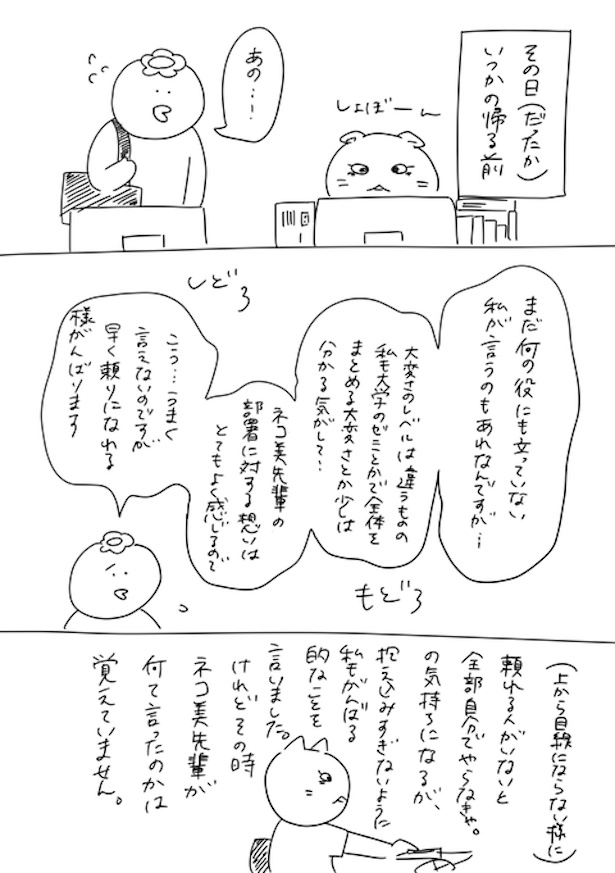 その日(だったか)
いつかの帰る前
しょぼーん
あの…!
まだ何の役にも立っていない
私が言うのもあれなんですが…
大変さのレベルは違うものの
私も大学のゼミとかで全体を
まとめる大変さとか少しは
分かる気がして…
ネコ美先輩の
部署に対する想いは
とてもよく感じるので
こう…うまく
言えないのですが
早く頼りになれる
様がんばります
しどろ
もどろ
(上から目線にならない様に)
頼れる人がいないと
全部自分でやらなきゃ。
の気持ちになるが、
抱え込みすぎないように
私もがんばる
的なことを
言いました。
けれどその時
ネコ美先輩が
何て言ったのかは
覚えていません。